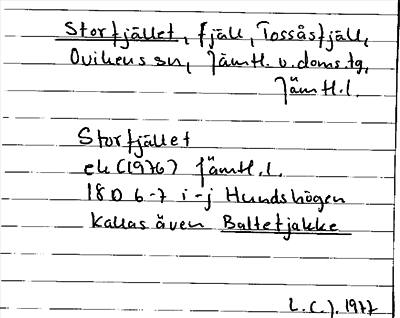 Storfjället, fjäll, Tossåsfjäll,
Ovikens sn, Jämtl. v. doms. tg,
Jämtl.l.
Storfjället
ek (1976) Jämtl.l.
18D 6-7 i-j Hundshögen
Kallas även Baltetjakke
L.C.J. 1977